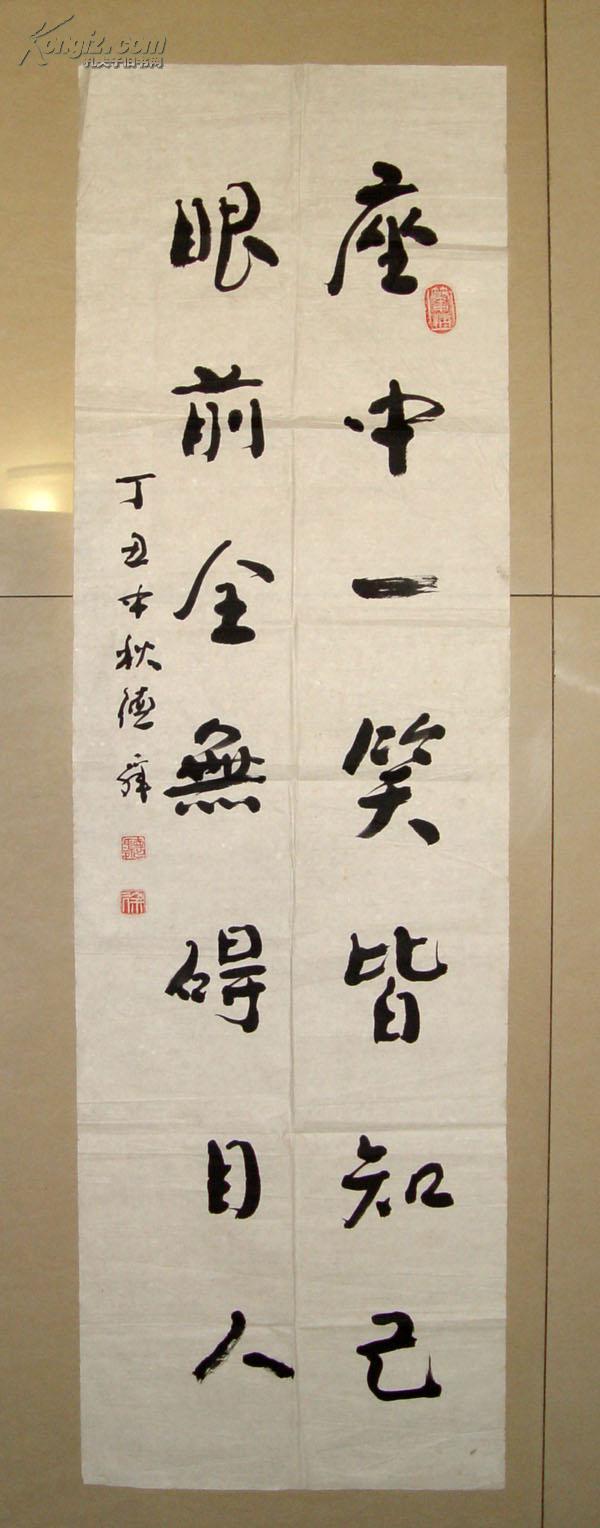 Kongfz.com
孔夫子旧书网
座中一笑皆知己
眼前全無碍目人
丁丑中秋德